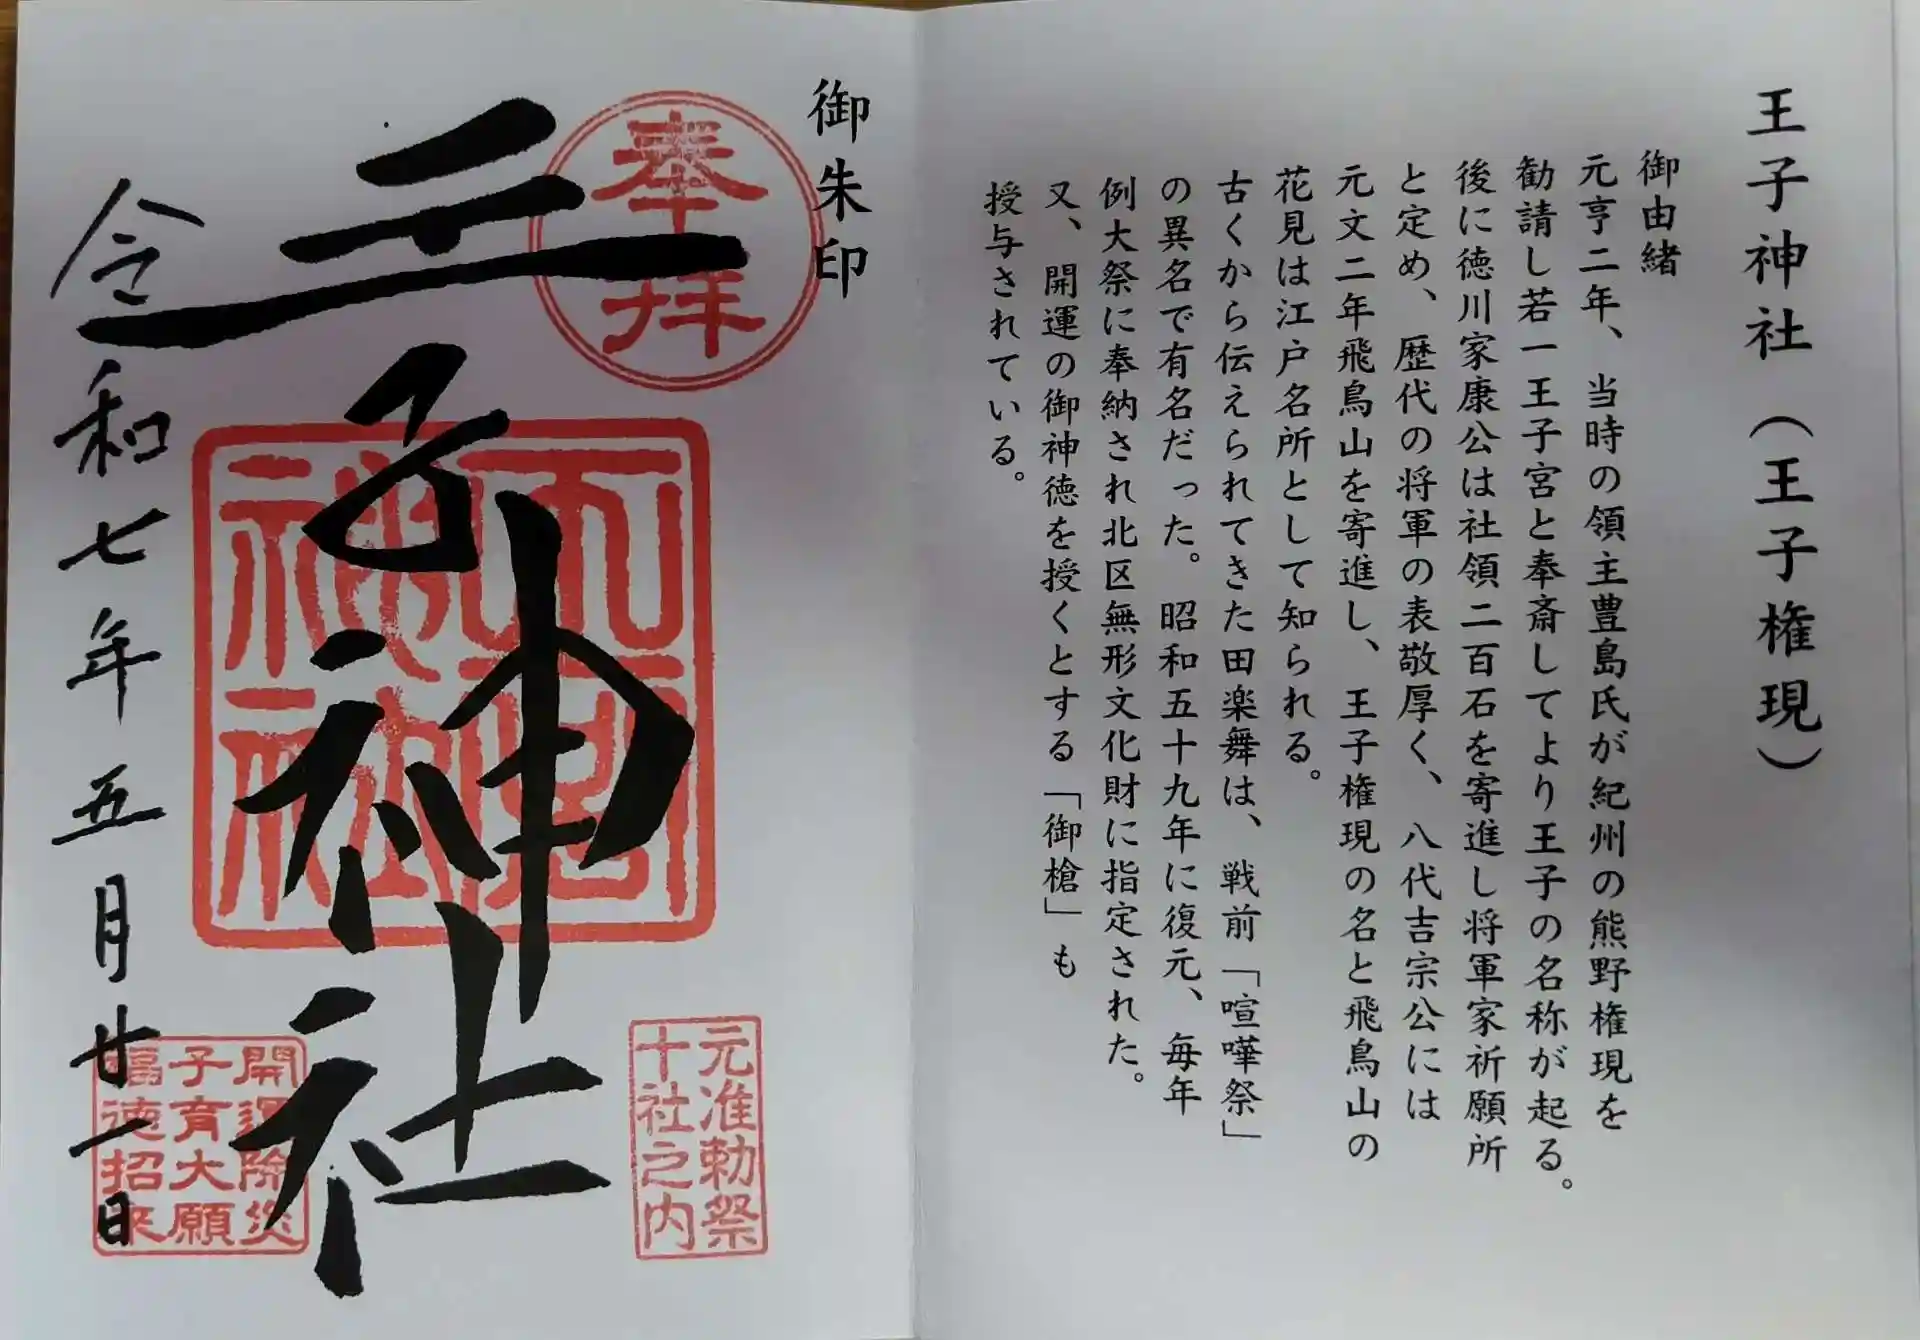 王子神社（王子権現）
御由緒
元亨二年、当時の領主豊島氏が紀州の熊野権現を
勧請し若一王子宮と奉斎してより王子の名称が起る。
後に徳川家康公は社領二百石を寄進し将軍家祈願所
と定め、歴代の将軍の表敬厚く、八代吉宗公には
元文二年飛鳥山を寄進し、王子権現の名と飛鳥山の
花見は江戸名所として知られる。
古くから伝えられてきた田楽舞は、戦前「喧嘩祭」
の異名で有名だった。昭和五十九年に復元、毎年
例大祭に奉納され北区無形文化財に指定された。
又、開運の御神徳を授くとする「御槍」も
授与されている。
御朱印
奉拝
王子神社
元准勅祭
十社之内
開運除災
子育大願
福徳招来
令和七年五月廿一日